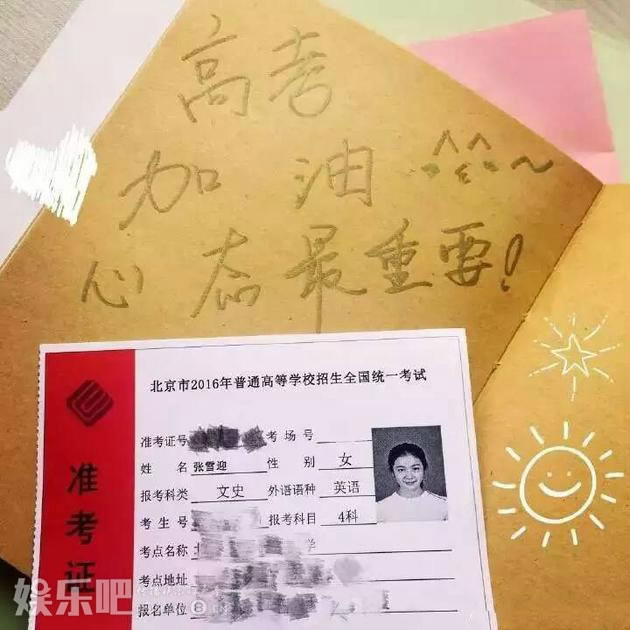 高考
加油
心态最重要!
北京市2016年普通高等学校招生全国统一考试
准考证
准考证号 考场号
姓名 张雪迎 性别 女
报考科类 文史 外语语种 英语
考生号 报考科目 4科
考点名称 北 学
考点地址
报名单位
娱乐吧